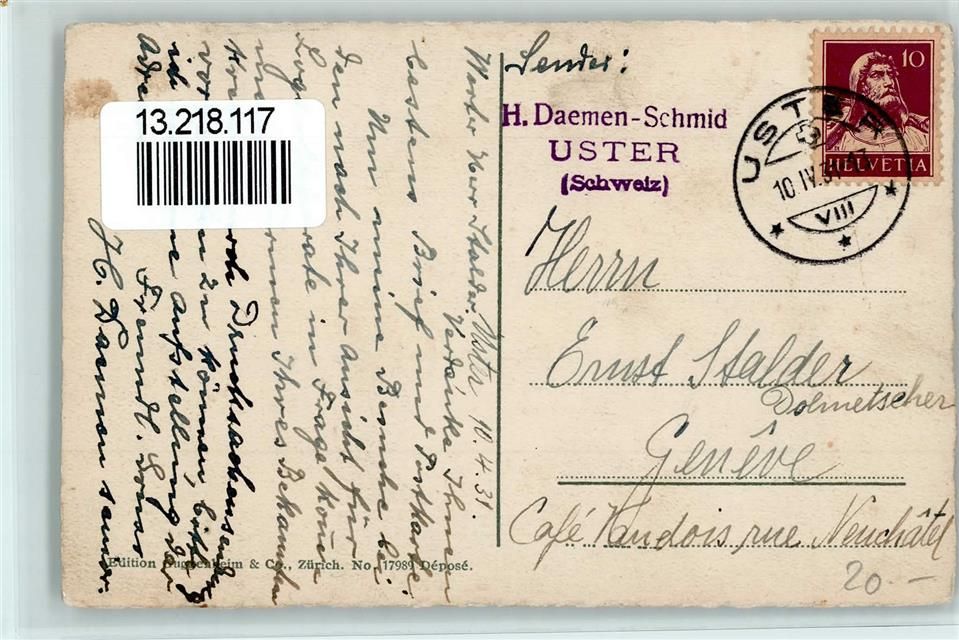 13.218.117
Sender:
H. Daemen-Schmid
USTER
(Schweiz)
10
HELVETIA
USTER
10.IV.31
VIII
Herrn
Ernst Stalder
Dolmetscher
Genêve
Café Vaudois, rue Neuchâtel
20.-
Uster, 10.4.31.
Werter Herr Stalder,
Verdanke Ihnen
bestens Brief und Postkarte
Nun meine Besuche bei
den nach Ihrer Ansicht für
in Frage kom̅en
Ihres Bekannten
Drucksachensendung
zu können, bitte
aufstellung der
Freundl. Gruss
H. Daemen senior.
Edition Guggenheim & Co., Zürich. No. 17989 Déposé.